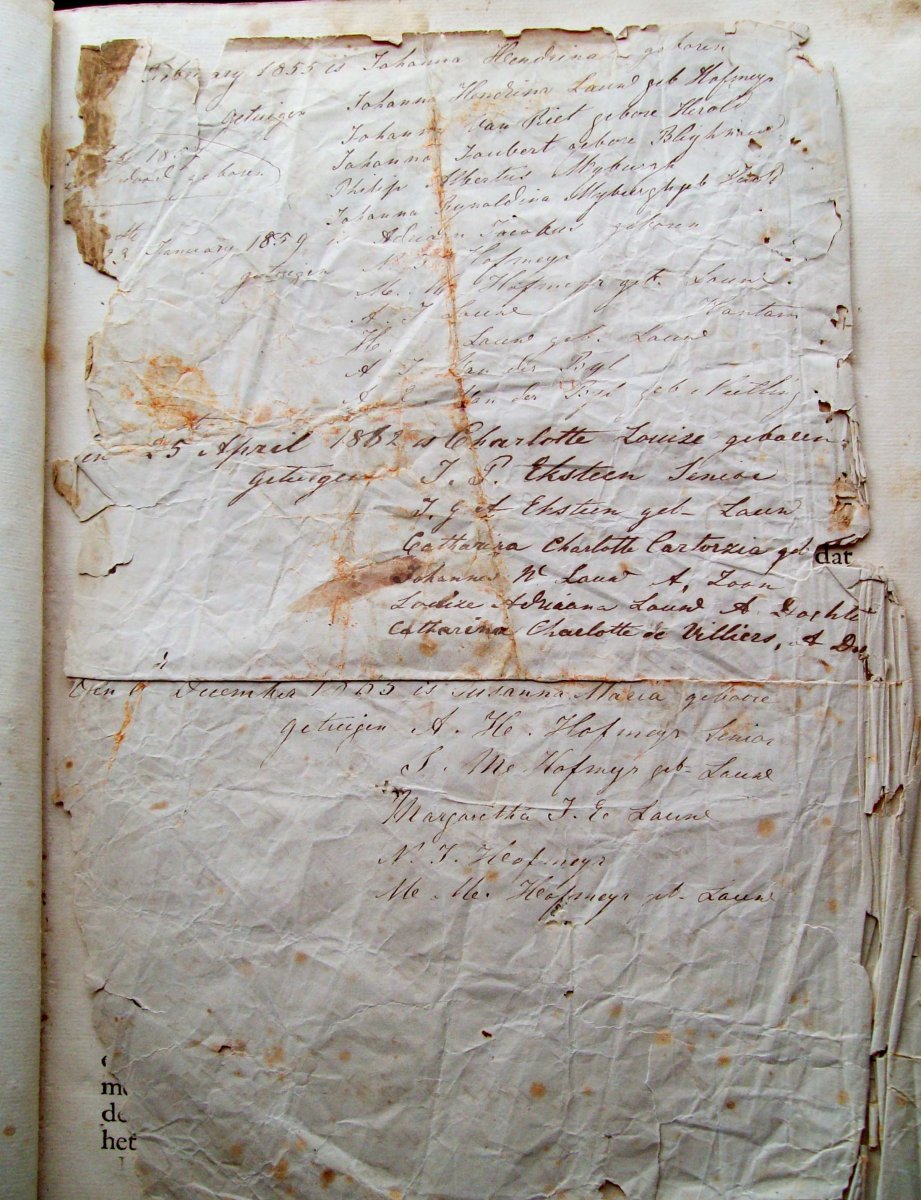 February 1855 is Johanna Hendrina geboren
getuigen Johanna Hendrina Louw geb Hofmeyr
Johanna Van Riet gebore Herold
Johanna Joubert gebore
Philip Albertus Myburgh
Johanna Reynoldina Myburgh geb
dood geboren
23 January 1859 is Adriaan Jacobus geboren
getuigen N. J. Hofmeyr
M. M. Hofmeyr geb. Louw
A. J. Louw Hantam
H. Louw geb. Louw
A. J. Van der Byl
A. Van der Byl geb Neethling
en 25 April 1862 is Charlotte Louize geboren
getuigen J. P. Eksteen Senior
J. G A Eksteen geb- Louw
Catharina Charlotte geb
dat
Johannes W Louw A, Zoon
Louize Adriana Louw A Dochte
Catharina Charlotte de Villiers, A
Den December 1865 is Susanna Maria geboore
getuigen A. H. Hofmeyr Senior
S. M. Hofmyr geb- Louw
Margaretha J. E Louw
N. J. Hofmeyr
M. M. Hofmeyr geb- Louw
het